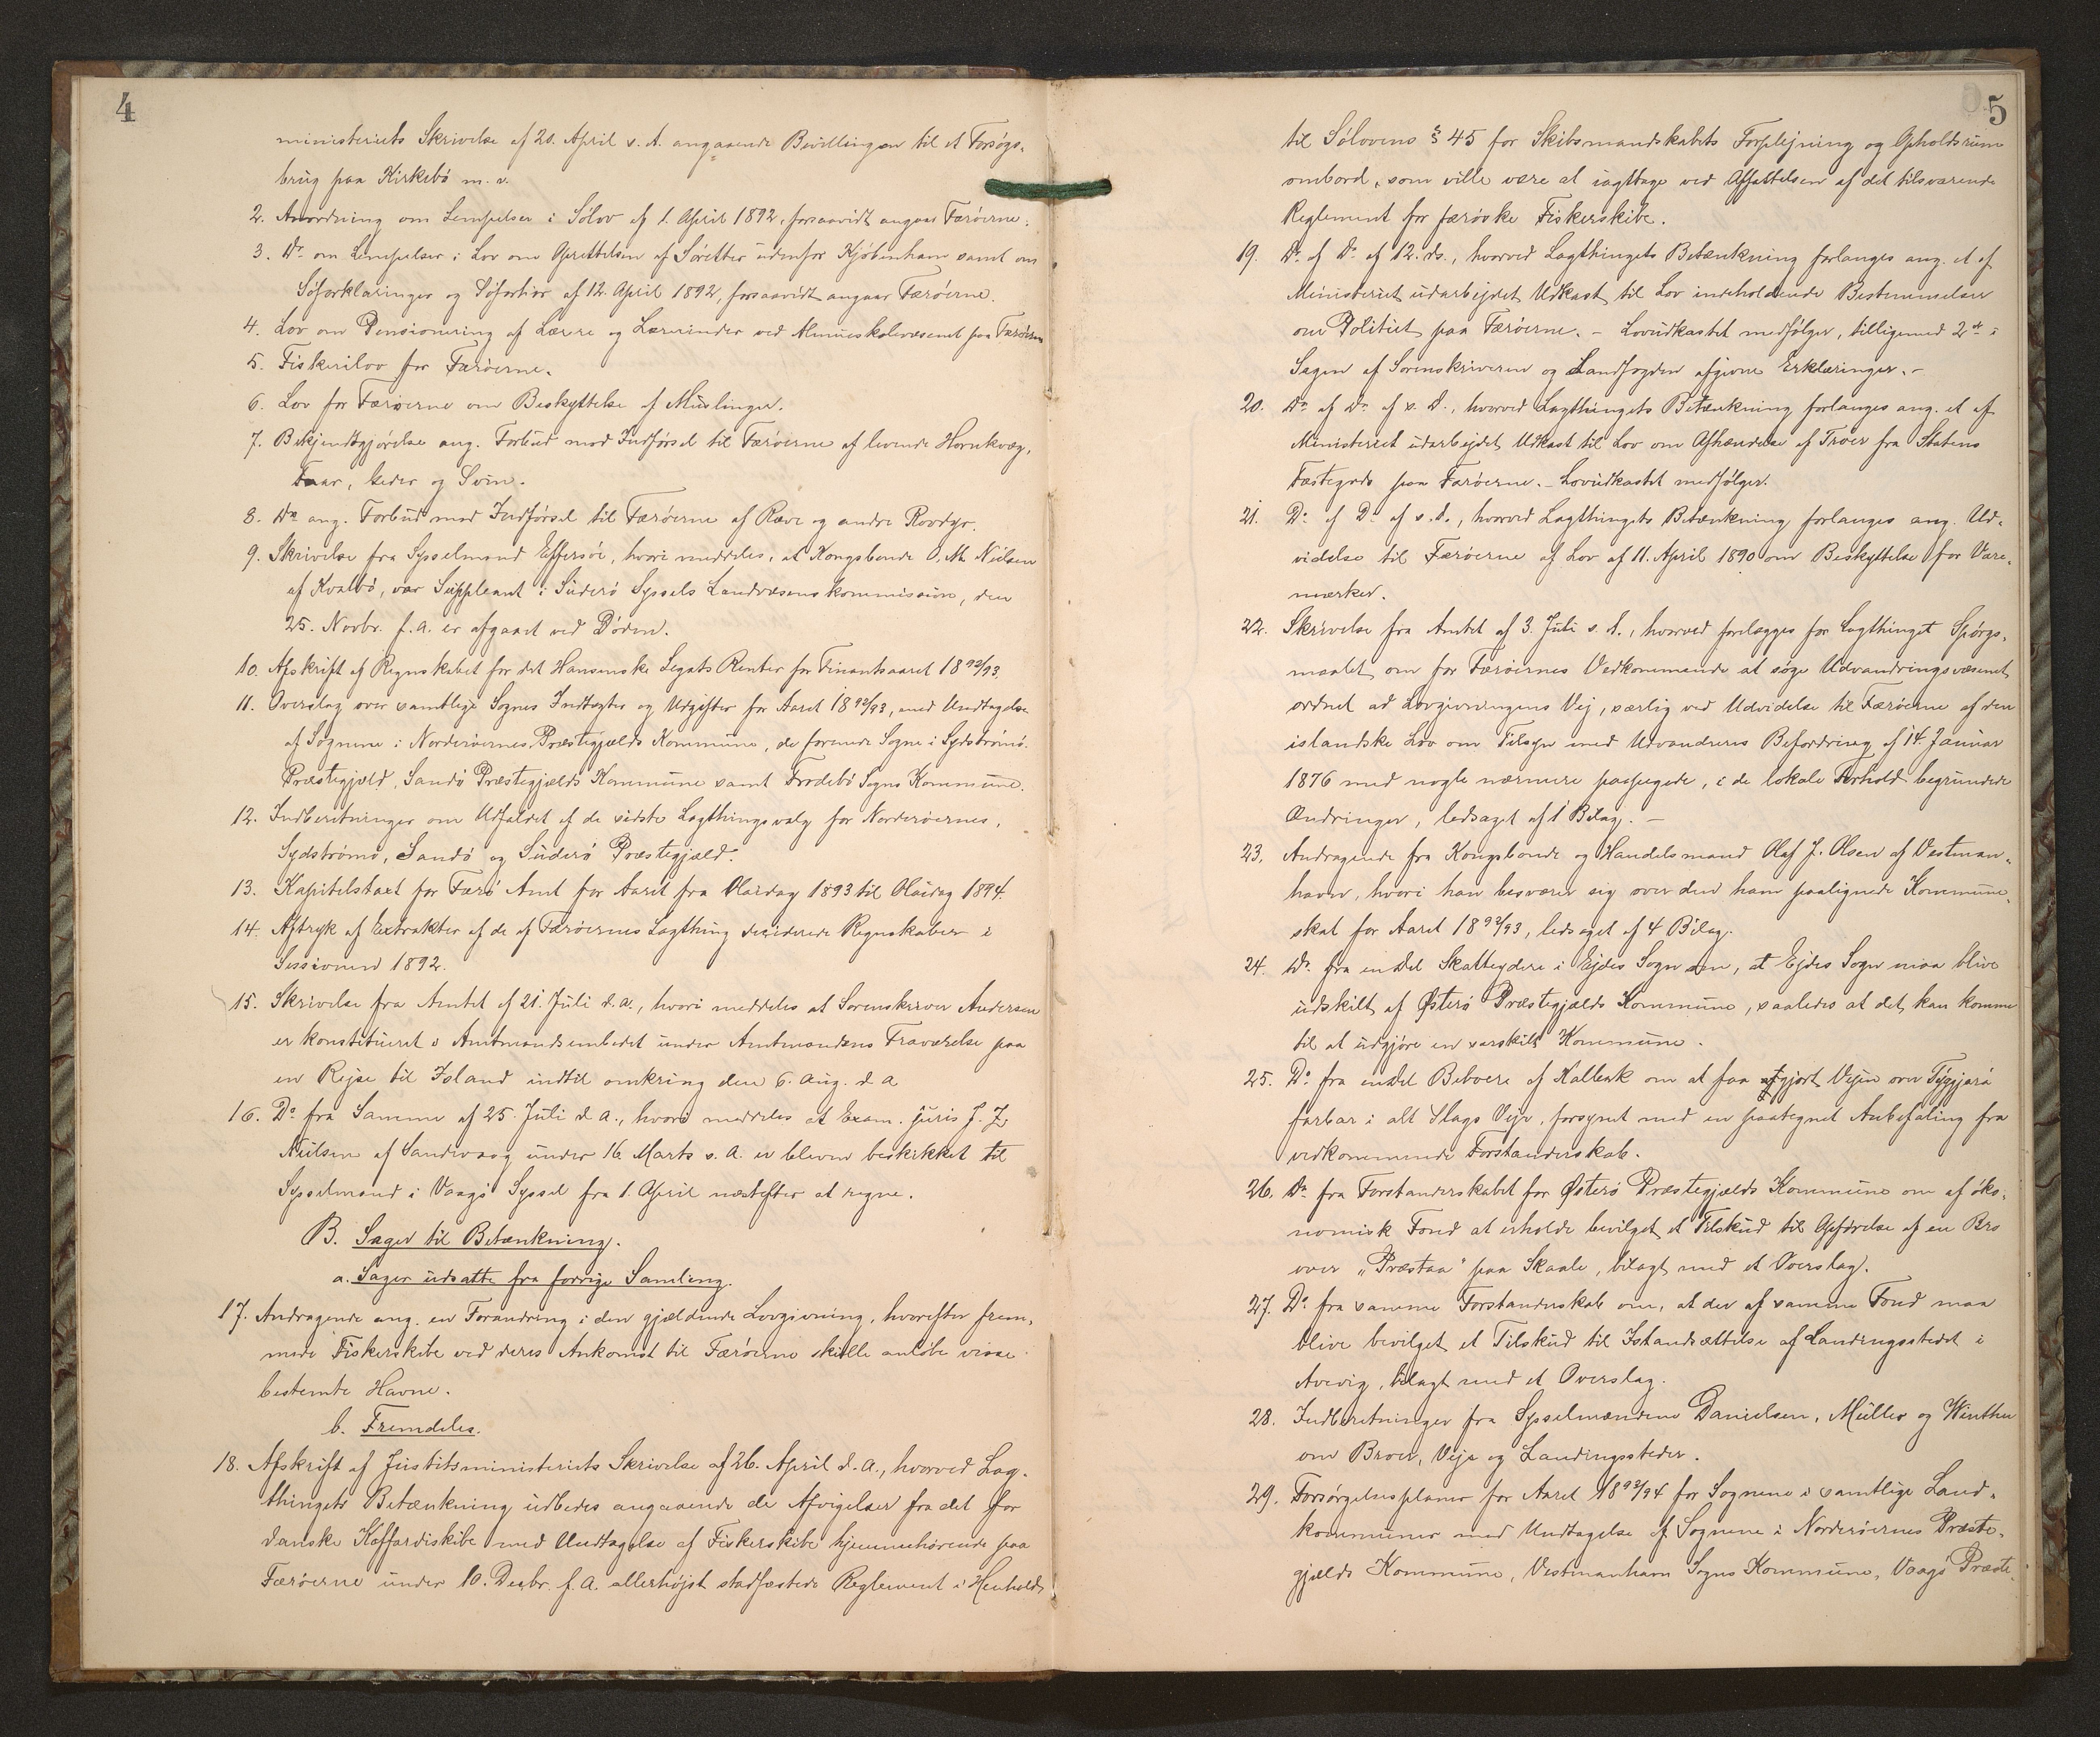 4
ministeriets Skrivelse af 20. April s. A. angaaende Bevillingen til et Forsøgs-
brug paa Kirkebö m. v.
2. Anordning om Lempelser i Sölov af 1. April 1892, forsaavidt angaar Færöerne.
3. Do om Lempelser i Lov om Oprettelsen af Söretter udenfor Kjöbenhavn samt om
Söforklaringer og Söfartier af 12. April 1892, forsaavidt angaar Færöerne.
4. Lov om Pensionering af Lærere og Lærerinder ved Almueskolevæsenet paa Færöerne
5. Fiskerilov for Færöerne.
6. Lov for Færöerne om Beskyttelse af Muslinger.
7. Bekjendtgjörelse ang. Forbud mod Indförsel til Færöerne af levende Hornkvæg,
Faar, Geder og Svin.
8. Do ang. Forbud mod Indförsel til Færöerne af Ræve og andre Rovdyr.
9. Skrivelse fra Sysselmand Effersöe, hvori meddeles, at Kongsbonde O. M. Nielsen
af Kvalbö, var Suppleant i Suderö Syssels Landvæsenskommission, den
25. Novbr. f. A. er afgaaet ved Döden.
10. Afskrift af Regnskabet for det Hansenske Legats Renter for Finantsaaret 1892/93.
11. Overslag over samtlige Sognes Indtægter og Udgifter for Aaret 1892/93, med Undtagelse
af Sognene i Norderöernes Præstegjælds Kommune, de forenede Sogne i Sydströmö
Præstegjæld, Sandö Præstegjælds Kommune samt Frodebö Sogns Kommune.
12. Indberetninger om Udfaldet af de sidste Lagthingsvalg for Norderöernes,
Sydströmö, Sandö og Suderö Præstegjæld.
13. Kapitelstaxt for Færö Amt for Aaret fra Olaidag 1893 til Olaidag 1894.
14. Aftryk af Extrakter af de af Færöernes Lagthing deciderede Regnskaber i
Sessionen 1892.
15. Skrivelse fra Amtet af 21. Juli d. A., hvori meddeles at Sorenskriver Andersen
er konstitueret i Amtmandsembedet under Amtmandens Fraværelse paa
en Rejse til Island indtil omkring den 6. Aug. d. A
16. Do fra Samme af 25. Juli d. A., hvori meddeles at Exam. juris J. Z.
Nielsen af Sandevaag under 16. Marts s. A. er bleven beskikket til
Sysselmand i Vaagö Syssel fra 1. April næstefter at regne.
B. Sager til Betænkning.
a. Sager udsatte fra forrige Samling.
17. Andragende ang. en Forandring i den gjældende Lovgivning, hvorefter frem-
mede Fiskerskibe ved deres Ankomst til Færöerne skulle anlöbe visse
bestemte Havne.
b. Fremdeles.
18. Afskrift af Justitsministeriets Skrivelse af 26. April d. A., hvorved Lag-
thingets Betænkning udbedes angaaende de Afvigelser fra det for
danske Koffardiskibe med Undtagelse af Fiskerskibe hjemmehörende paa
Færöerne under 10. Decbr. f. A. allerhöjst stadfæstede Reglement i Henhold
5
til Sölovens § 45 for Skibsmandskabets Forplejning og Opholdsrum
ombord, som ville være at iagttage ved Affattelsen af det tilsvarende
Reglement for færöske Fiskerskibe.
19. Do af Do af 12. ds., hvorved Lagthingets Betænkning forlanges ang. et af
Ministeriet udarbejdet Udkast til Lov indeholdende Bestemmelser
om Politiet paa Færöerne. – Lovudkastet medfölger, tilligemed 2de i
Sagen af Sorenskriveren og Landfogden afgivne Erklæringer. –
20. Do af Do af s. D., hvorved Lagthingets Betænkning forlanges ang. et af
Ministeriet udarbejdet Udkast til Lov om Afhændelse af Tröer fra Statens
Fæstegods paa Færöerne. – Lovudkastet medfölger.
21. Do af Do af s. d., hvorved Lagthingets Betænkning forlanges ang. Ud-
videlse til Færöerne af Lov af 11. April 1890 om Beskyttelse for Vare-
mærker.
22. Skrivelse fra Amtet af 3. Juli s. A., hvorved forelægges for Lagthinget Spörgs-
maalet om for Færöernes Vedkommende at söge Udvandringsvæsenet
ordnet ad Lovgivningens Vej, særlig ved Udvidelse til Færöerne af den
islandske Lov om Tilsyn med Udvandreres Befordring af 14. Januar
1876 med nogle nærmere paapegede, i de lokale Forhold begrundede
Ændringer, ledsaget af 1 Bilag. –
23. Andragende fra Kongsbonde og Handelsmand Olaf J. Olsen af Vestman-
havn, hvori han besværer sig over den ham paalignede Kommune-
skat for Aaret 1892/93, ledsaget af 4 Bilag.
24. Do fra en Del Skatteydere i Ejdes Sogn om, at Ejdes Sogn maa blive
udskilt af Østerö Præstegjælds Kommune, saaledes at det kan komme
til at udgjöre en særskilt Kommune.
25. Do fra endel Beboere af Kalbak om at faa gjort Vejen over
farbar i alt Slags Vejr, forsynet med en paategnet Anbefaling fra
vedkommende Forstanderskab.
26. Do fra Forstanderskabet for Østerö Præstegjælds Kommune om af öko-
nomisk Fond at erholde bevilget et Tilskud til Opförelse af en Bro
over „Præstaa“ paa Skaale, bilagt med et Overslag.
27. Do fra samme Forstanderskab om, at der af samme Fond maa
blive bevilget et Tilskud til Istandsættelse af Landingsstedet i
Arevig, bilagt med et Overslag.
28. Indberetninger fra Sysselmændene Danielsen, Müller og Winther
om Broer, Veje og Landingssteder.
29. Forsörgelsesplaner for Aaret 1893/94 for Sognene i samtlige Land-
kommuner med Undtagelse af Sognene i Norderöernes Præste-
gjælds Kommune, Vestmanhavn Sogns Kommune, Vaagö Præste-